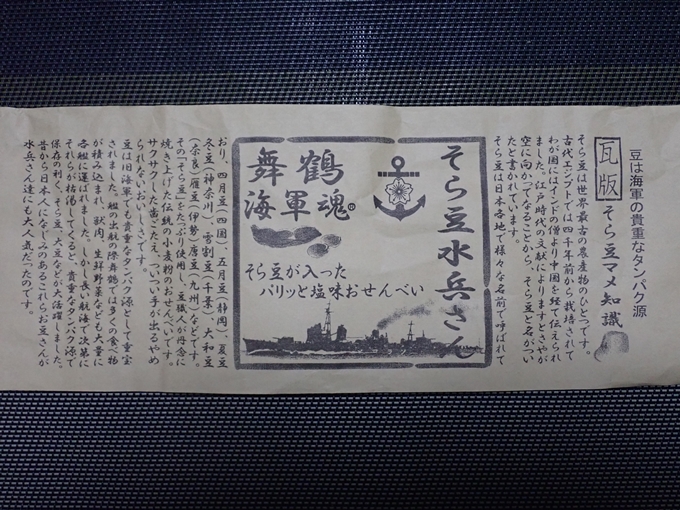 豆は海軍の貴重なタンパク源
瓦版 そら豆マメ知識
そら豆は世界最古の農産物のひとつです。
古代エジプトでは四千年前から栽培されて
わが国にはインドの僧より中国を経て伝えられ
ました。江戸時代の文献によりますとさやが
空に向かってなることから、そら豆と名がつい
たと書かれています。
そら豆は日本各地で様々な名前で呼ばれて
そら豆水兵さん
舞鶴
海軍魂
そら豆が入った
パリッと塩味おせんべい
おり、四月豆(四国)、五月豆(静岡)、夏豆
冬豆(神奈川)、雪割豆(千葉)、大和豆
(奈良)雁豆(伊勢)唐豆(九州)などです。
その「そら豆」をたっぷり使用し、豆職人が丹念に
焼き上げた伝統の小麦粉のおせんべいです。
サクサクした歯ごたえ、ついつい手が出るやめ
られないおいしさです。
豆は旧海軍でも貴重なタンパク源として重宝
されました。艦の出航の際舞鶴では多くの食べ物
が積み込まれ、獣肉、生鮮野菜なども大量に
各艦に運ばれました。しかし長い航海で次第に
それらが枯渇してくると、貴重なタンパク源で
保存の利く、そら豆、大豆などが大活躍しました。
昔から日本人になじみのあるこれらお豆さんが
水兵さん達にも大人気だったのです。